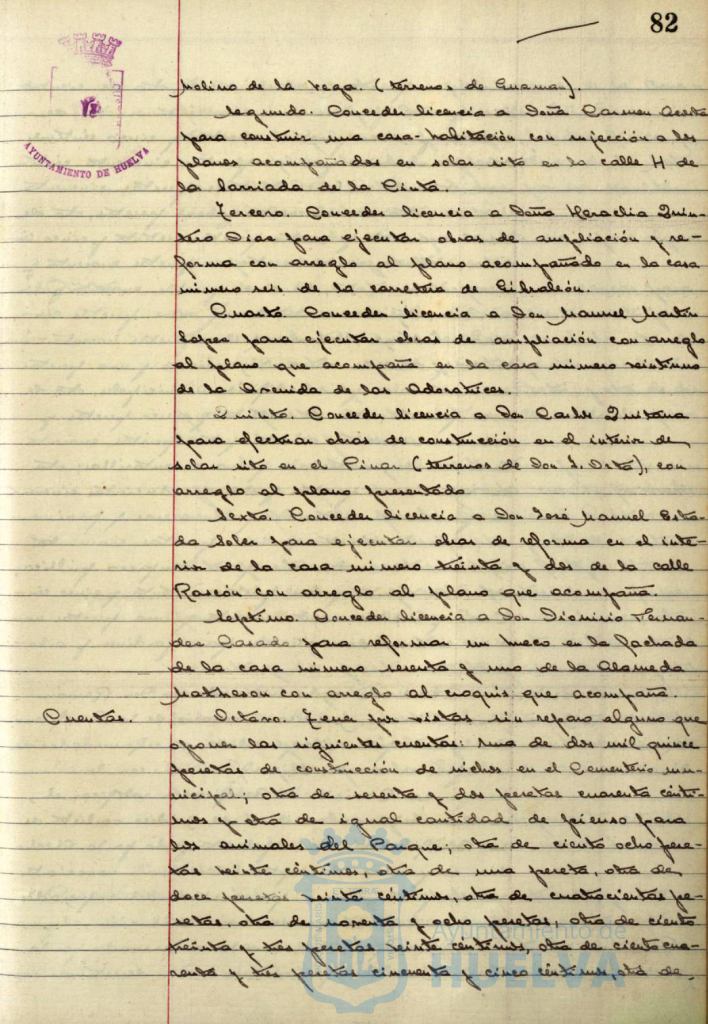 82
AYUNTAMIENTO DE HUELVA
Molino de la Vega. (terrenos de Guaman).
Segundo. Conceder licencia a Doña Carmen Acosta
para construir una casa-habitación con sujección a los
planos acompañados en solar sito en la calle H de
la barriada de la Cinta.
Tercero. Conceder licencia a Doña Heraclia Quin-
tero Diaz para ejecutar obras de ampliación y re-
forma con arreglo al plano acompañado en la casa
número seis de la carretera de Gibraleón.
Cuarto. Conceder licencia a Don Manuel Martín
Lopez para ejecutar obras de ampliación con arreglo
al plano que acompaña en la casa número veintiuno
de la Avenida de las Adoratrices.
Quinto. Conceder licencia a Don Carlos Quintana
para efectuar obras de construcción en el interior de
solar sito en el Pinar (terrenos de Don J. Orta), con
arreglo al plano presentado
Sexto. Conceder licencia a Don José Manuel Estra-
da Soler para ejecutar obras de reforma en el inte-
rior de la casa número treinta y dos de la calle
Rascón con arreglo al plano que acompaña.
Septimo. Conceder licencia a Don Dionisio Fernan-
dez Casado para reformar un hueco en la fachada
de la casa número sesenta y uno de la Alameda
Matheson con arreglo al croquis que acompaña.
Cuentas. Octavo. Tener por vistas sin reparo alguno que
oponer las siguientes cuentas: una de dos mil quince
pesetas de construcción de nichos en el Cementerio mu-
nicipal; otra de sesenta y dos pesetas cuarenta cénti-
mos y otra de igual cantidad de pienso para
los animales del Parque; otra de ciento ocho pese-
tas veinte céntimos, otra de una peseta, otra de
doce pesetas veinte céntimos, otra de cuatrocientas pe-
setas, otra de noventa y ocho pesetas, otra de ciento
treinta y tres pesetas veinte céntimos, otra de ciento cua-
renta y tres pesetas cincuenta y cinco céntimos, otra de
Ayuntamiento de
HUELVA